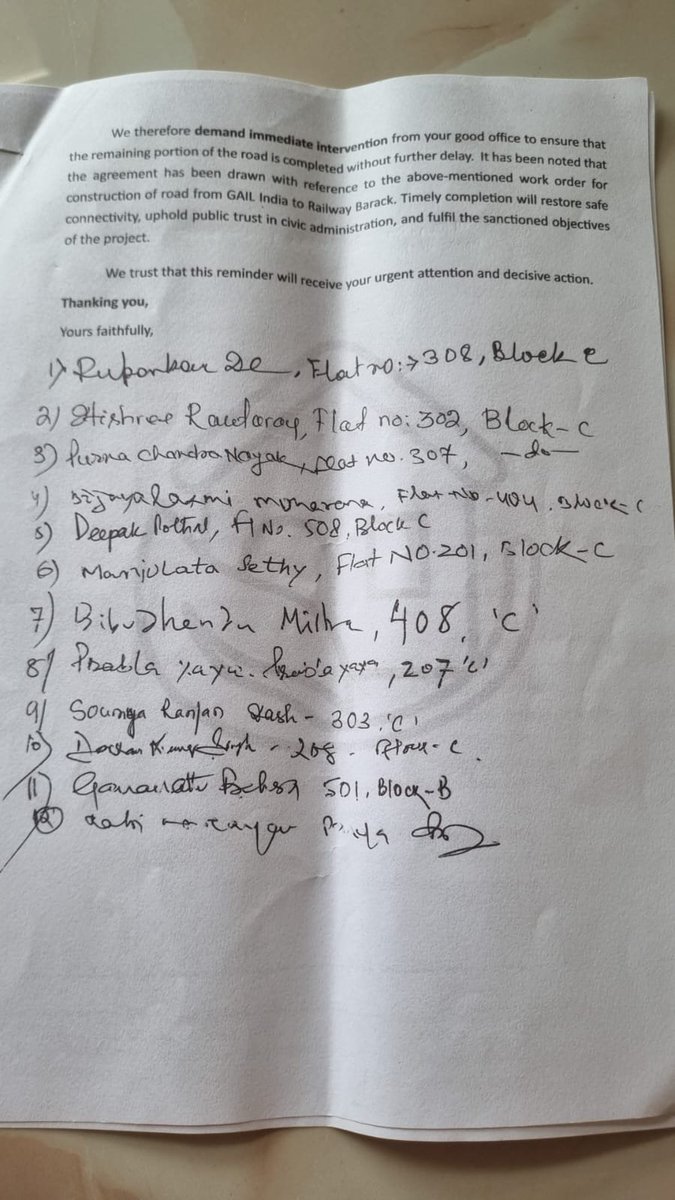 We therefore demand immediate intervention from your good office to ensure that
the remaining portion of the road is completed without further delay. It has been noted that
the agreement has been drawn with reference to the above-mentioned work order for
construction of road from GAIL India to Railway Barack. Timely completion will restore safe
connectivity, uphold public trust in civic administration, and fulfil the sanctioned objectives
of the project.
We trust that this reminder will receive your urgent attention and decisive action.
Thanking you,
Yours faithfully,
1) De, Flat no:→308, Block C
2) Flat no: 302, Block-C
3) Purna Chandra Nayak, no. 307, —do—
4) Bijayalaxmi moharana, Flat-No-404, Block-C
5) Deepak Fl No. 508, Block C
6) Manjulata Sethy, Flat NO-201, Block-C
7) Mishra, 408, 'C'
8) 207 'C'
9) Soumya Ranjan Dash - 303, 'C'
10) Singh - 208 - Block-C.
11) Behera 501, Block-B
12)